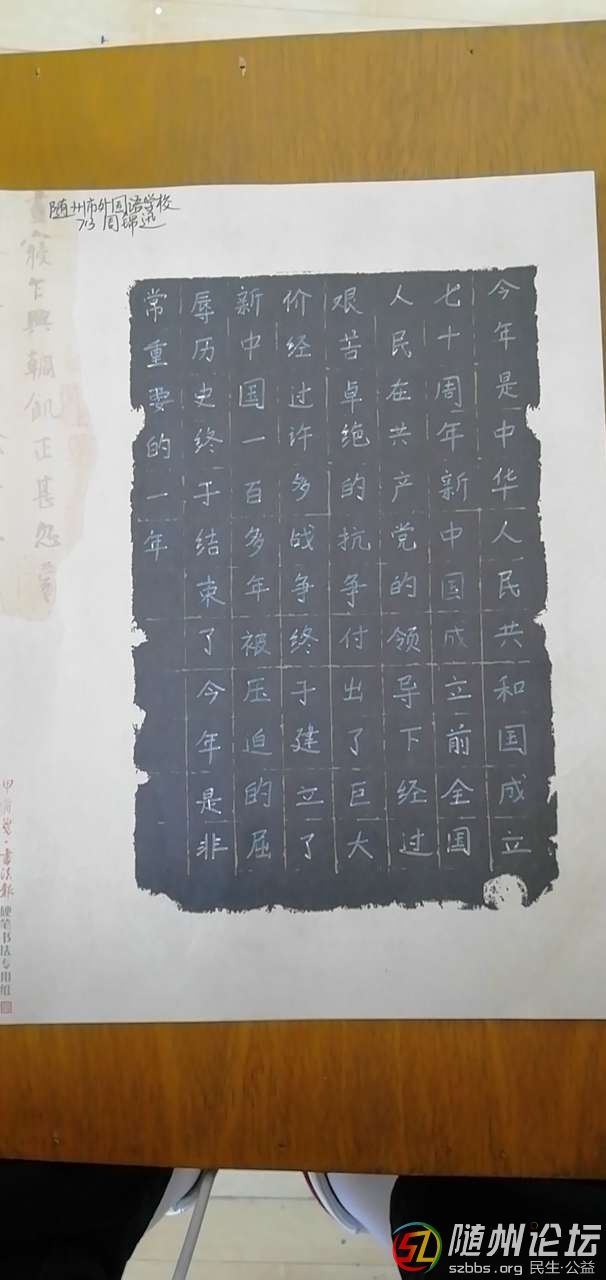 随州市外国语学校
713 周锦
今年是中华人民共和国成立
七十周年新中国成立前全国
人民在共产党的领导下经过
艰苦卓绝的抗争付出了巨大
价经过许多战争终于建立了
新中国一百多年被压迫的屈
辱历史终于结束了今年是非
常重要的一年
寝乍興輖飢正甚忽
書法報
硬笔书法专用纸
随州论坛
szbbs.org 民生·公益